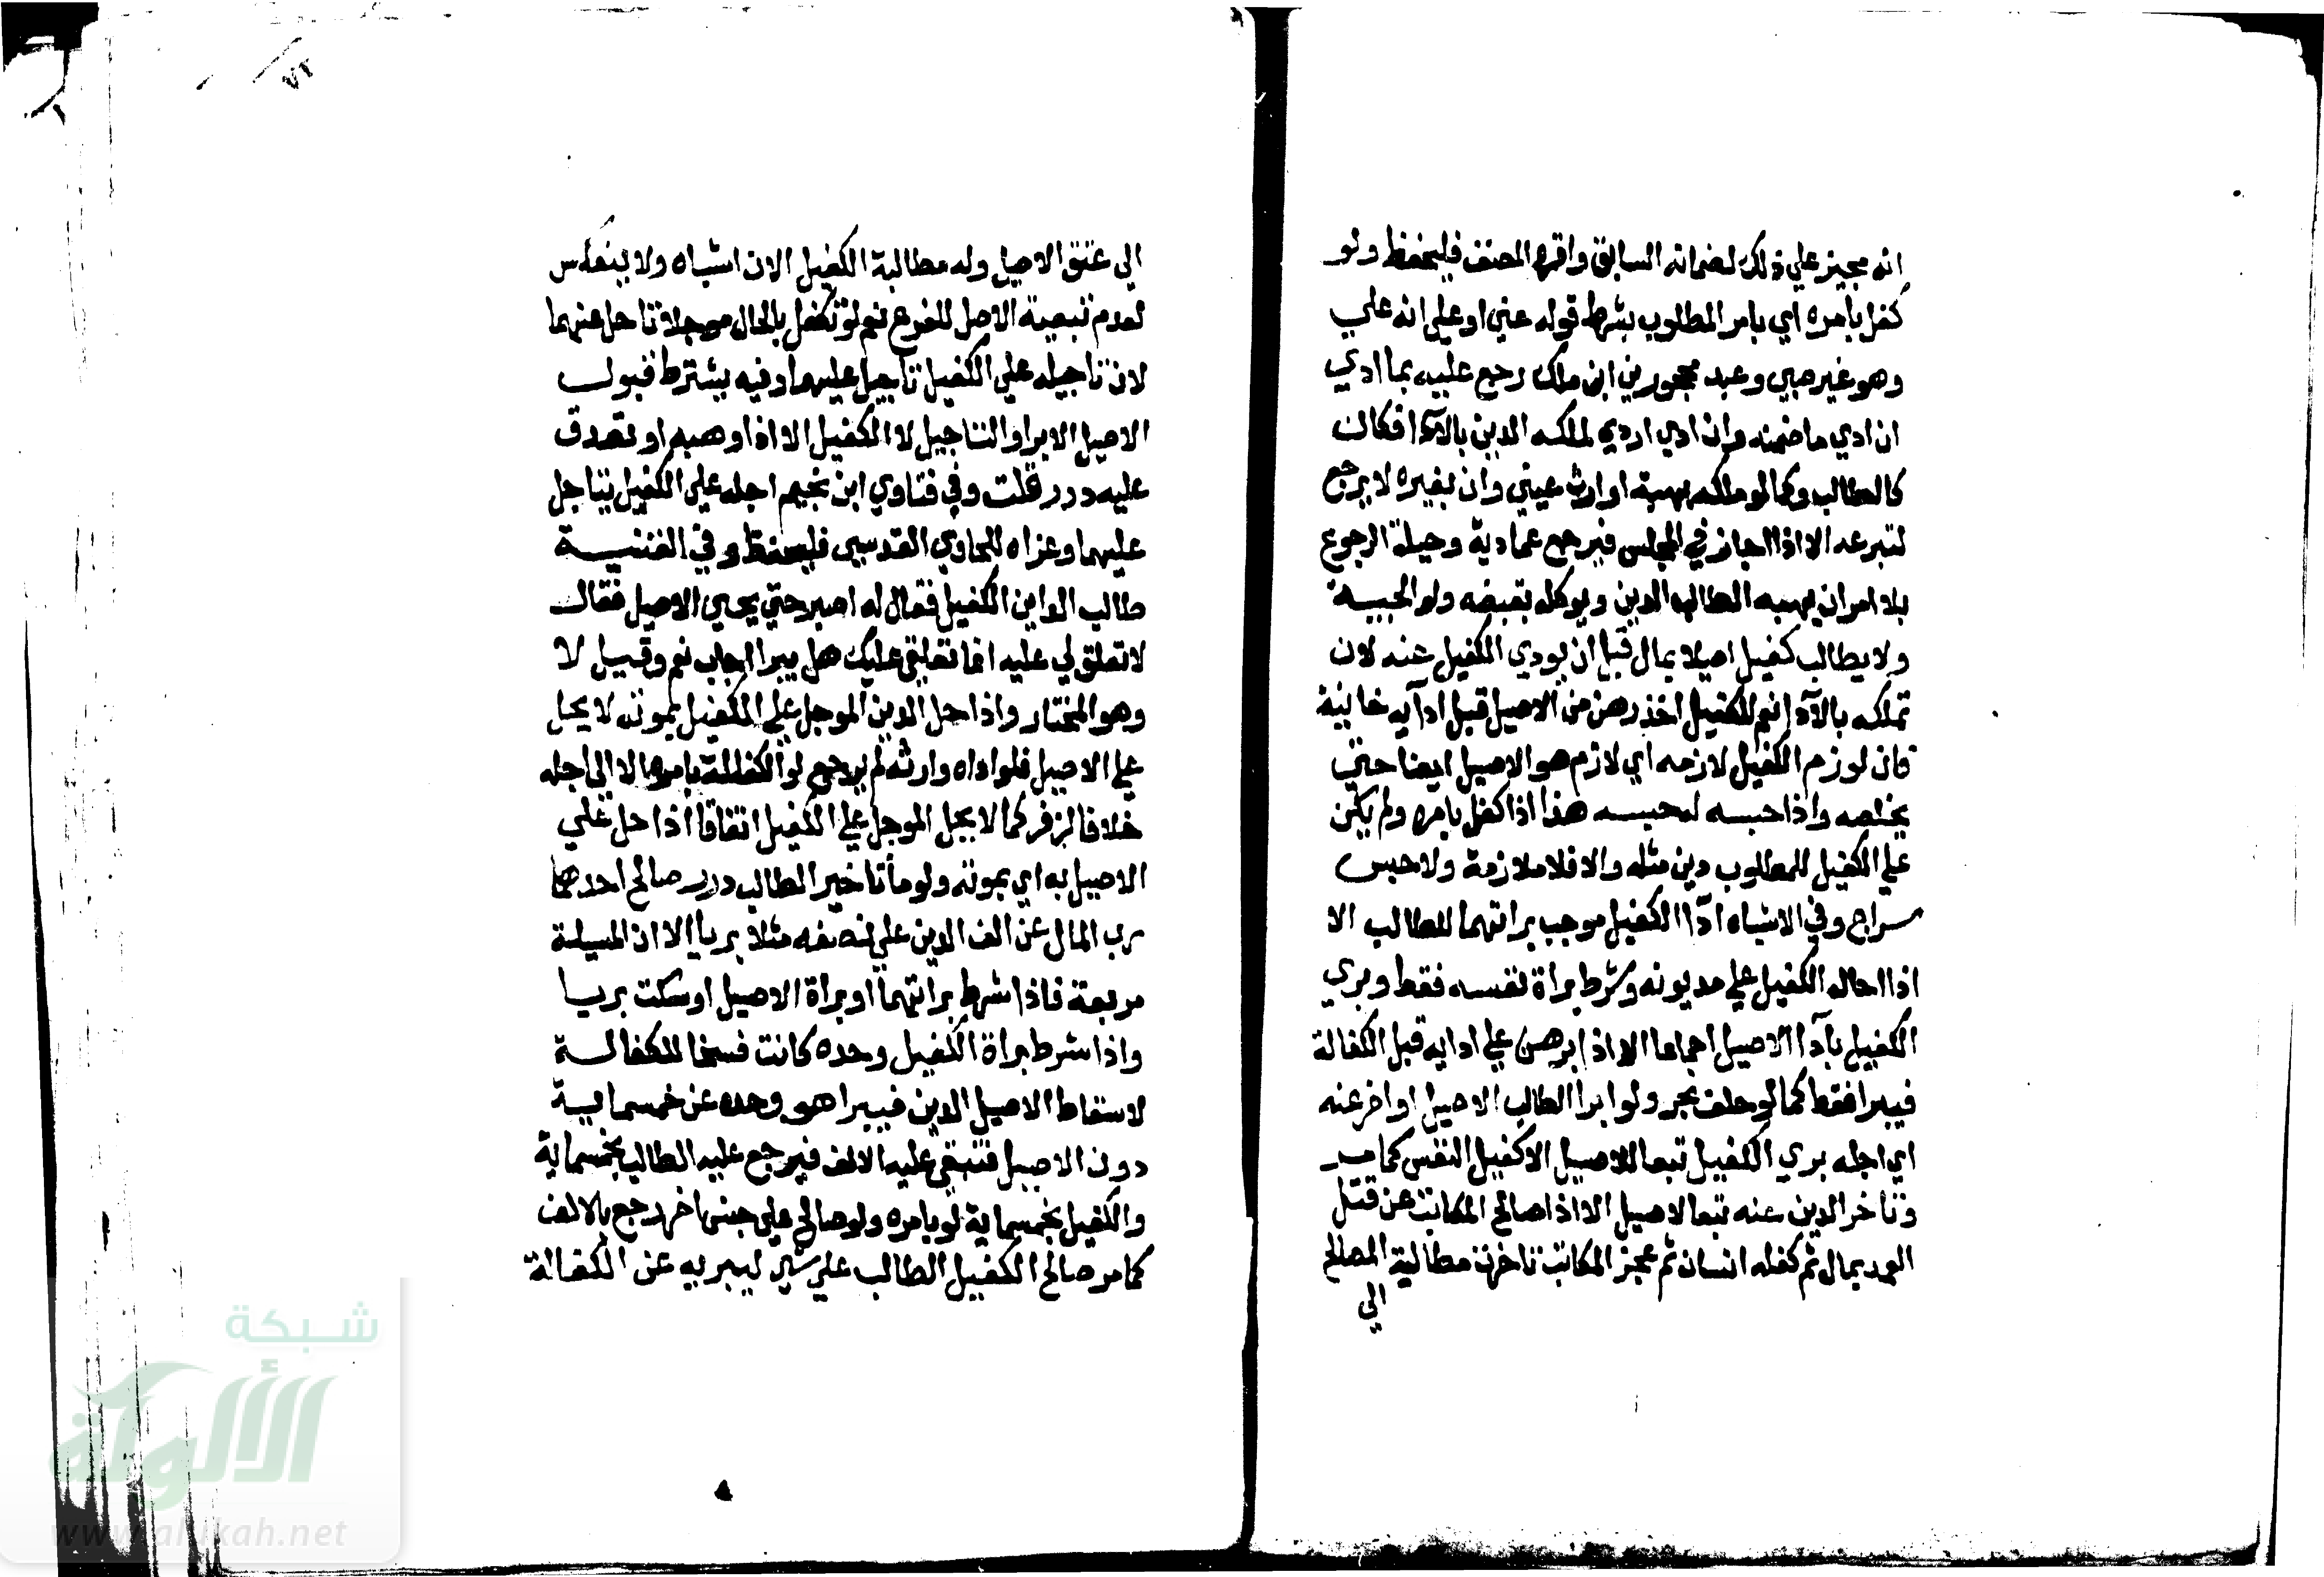 انه مجيز علي ذلك لضمانه السابق واقره المصنف فليحفظ ولو
كفل بامره اي بامر المطلوب بشرط قوله عني او علي انه علي
وهو غير صبي وعبد محجورين ابن ملك رجع عليه بما ادي
ان ادي ما ضمنه وان ادي اردي لملكه الدين بالآدا فكان
كالطالب وكما لو ملكه بهبة او ارث عيني وان بغيره لا يرجع
لتبرعه الا اذا اجاز في المجلس فيرجع عمادية وحيلة الرجوع
بلا امر ان يهبه الطالب الدين ويوكله بقبضه ولوالجيسة
ولا يطالب كفيل اصيلا بمال قبل ان يودي الكفيل عنه لان
تملكه بالآدا نعم للكفيل اخذ رهن من الاصيل قبل ادآيه خانية
فان لوزم الكفيل لازمه اي لازم هو الاصيل ايضا حتي
يخلصه واذا حبسه له حبسه هذا اذا كفل بامره ولم يكن
علي الكفيل للمطلوب دين مثله والا فلا ملازمة ولا حبس
سراج وفي الاشباه ادآ الكفيل موجب براتهما للطالب الا
اذا احاله الكفيل علي مديونه وشرط براة نفسه فقط وبري
الكفيل بادآ الاصيل اجماعا الا اذا برهن علي ادايه قبل الكفالة
فيبرا فقط كما لو حلف بحر ولو ابرا الطالب الاصيل او اخر عنه
اي اجله بري الكفيل تبعا للاصيل الا كفيل النفس كما مر
وتاخر الدين عنه تبعا لاصيل الا اذا صالح المكاتب عن قتل
العمد بمال ثم كفله انسان ثم عجز المكاتب تاخرت مطالبة المصالح
الي
الي عتق الاصيل وله مطالبة الكفيل الان اشباه ولا ينعكس
لعدم تبعية الاصل للفرع نعم لو تكفل بالحال موجلا تاجل عنهما
لان تاجيله علي الكفيل تاجيل عليهما وفيه يشترط قبول
الاصيل الابرا والتاجيل لا الكفيل الا اذا وهبه او تصدق
عليه درر قلت وفي فتاوي ابن نجيم اجله علي الكفيل يتاجل
عليهما وعزاه للحاوي القدسي فليحفظ وفي القنيسة
طالب الداين الكفيل فقال له اصبر حتي يجي الاصيل فقال
لا تعلق لي عليه انما تعلقي عليك هل يبرا اجاب نعم وقيل لا
وهو المختار واذا حل الدين الموجل علي الكفيل بموته لا يحل
علي الاصيل فلو اداه وارثه لم يرجع لو الكفالة بامره الا الي اجله
خلافا لزفر كما لا يحل الموجل علي الكفيل اتفاقا اذا حل علي
الاصيل به اي بموته ولو ماتا خير الطالب درر صالح احدهما
رب المال عن الف الدين علي نصفه مثلا بريا الا ان المسيلة
مربعة فاذا شرط براتهما او براة الاصيل او سكت بريا
واذا شرط براة الكفيل وحده كانت فسخا للكفالة
لا سقاط الاصيل الدين فيبرا هو وحده عن خمسماية
دون الاصيل فتبقي عليه الالف فيرجع عليه الطالب بخمسماية
والكفيل بخمسماية لو بامره ولو صالح علي جنس اخر رجع بالالف
كما مر صالح الكفيل الطالب علي شي ليبريه عن الكفالة
شبكة
الألوكة
www.alukah.net